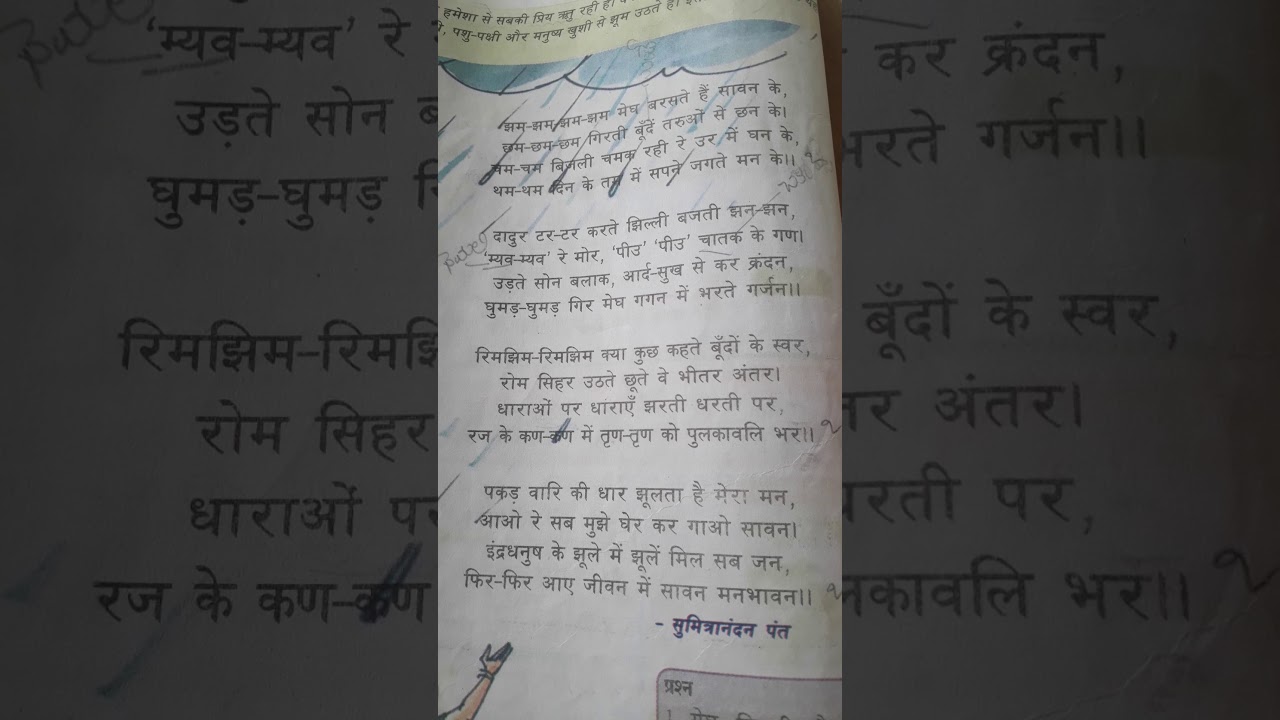 हमेशा से सबकी प्रिय ऋतु रही है।
पशु-पक्षी और मनुष्य खुशी से झूम उठते हैं।
झम-झम-झम-झम मेघ बरसते हैं सावन के,
छम-छम-छम गिरती बूँदें तरुओं से छन के।
चम-चम बिजली चमक रही रे उर में घन के,
थम-थम दिन के तम में सपने जगते मन के।।
दादुर टर-टर करते झिल्ली बजती झन-झन,
‘म्यव-म्यव’ रे मोर, ‘पीउ’ ‘पीउ’ चातक के गण।
उड़ते सोन बलाक, आर्द-सुख से कर क्रंदन,
घुमड़-घुमड़ गिर मेघ गगन में भरते गर्जन।।
रिमझिम-रिमझिम क्या कुछ कहते बूँदों के स्वर,
रोम सिहर उठते छूते वे भीतर अंतर।
धाराओं पर धाराएँ झरती धरती पर,
रज के कण-कण में तृण-तृण को पुलकावलि भर।।
पकड़ वारि की धार झूलता है मेरा मन,
आओ रे सब मुझे घेर कर गाओ सावन।
इंद्रधनुष के झूले में झूलें मिल सब जन,
फिर-फिर आए जीवन में सावन मनभावन।।
- सुमित्रानंदन पंत
प्रश्न